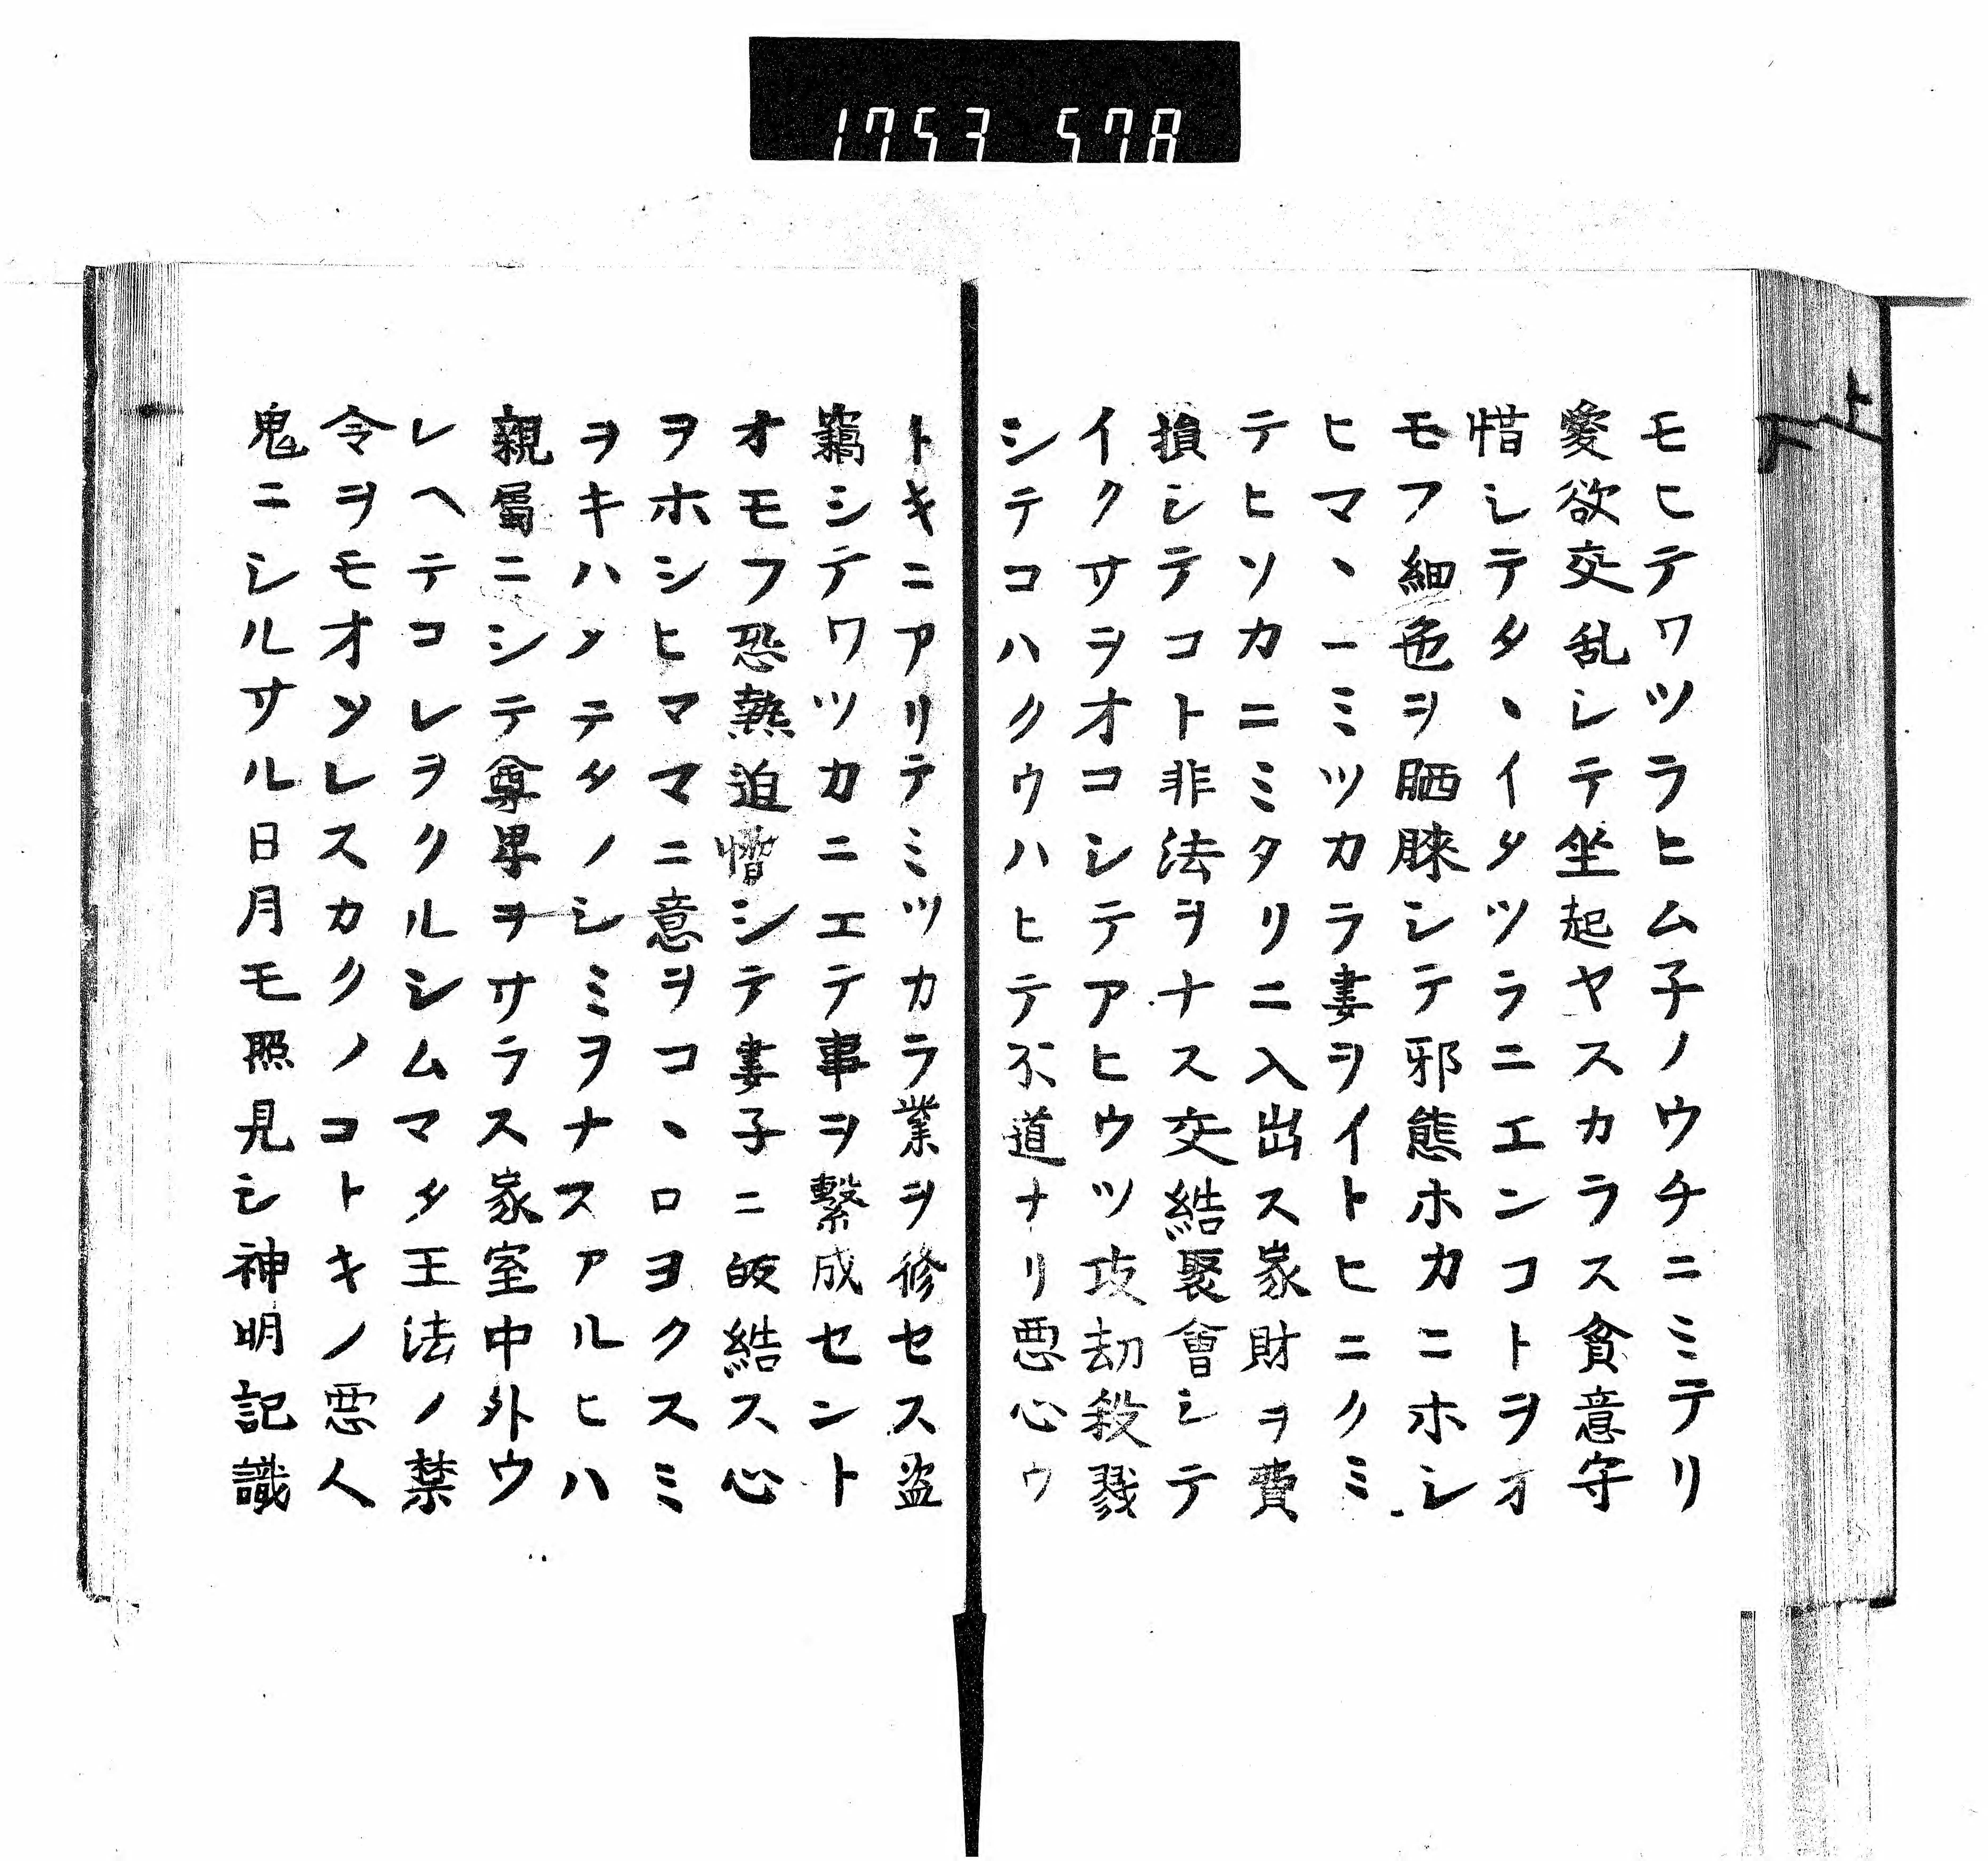 1753 578
モヒテワツラヒム子ノウチニミテリ
愛欲交乱シテ坐起ヤスカラス貪意守
惜シテタヽイタツラニエンコトヲオ
モフ細色ヲ眄睞シテ邪態ホカニホシ
ヒマヽーミツカラ妻ヲイトヒニクミ
テヒソカニミタリニ入出ス家財ヲ費
損シテコト非法ヲナス交結聚會シテ
イクサヲオコシテアヒウツ攻劫殺戮
シテコハクウハヒテ不道ナリ悪心ウ
トキニアリテミツカラ業ヲ修セス盗
竊シテワツカニエテ事ヲ繋成セント
オモフ恐熱迫憎シテ妻子ニ皈結ス心
ヲホシヒママニ意ヲコヽロヨクスミ
ヲキハメテタノシミヲナスアルヒハ
親属ニシテ尊卑ヲサラス家室中外ウ
レヘテコレヲクルシムマタ王法ノ禁
令ヲモオソレスカクノコトキノ悪人
鬼ニシルサル日月モ照見シ神明記識